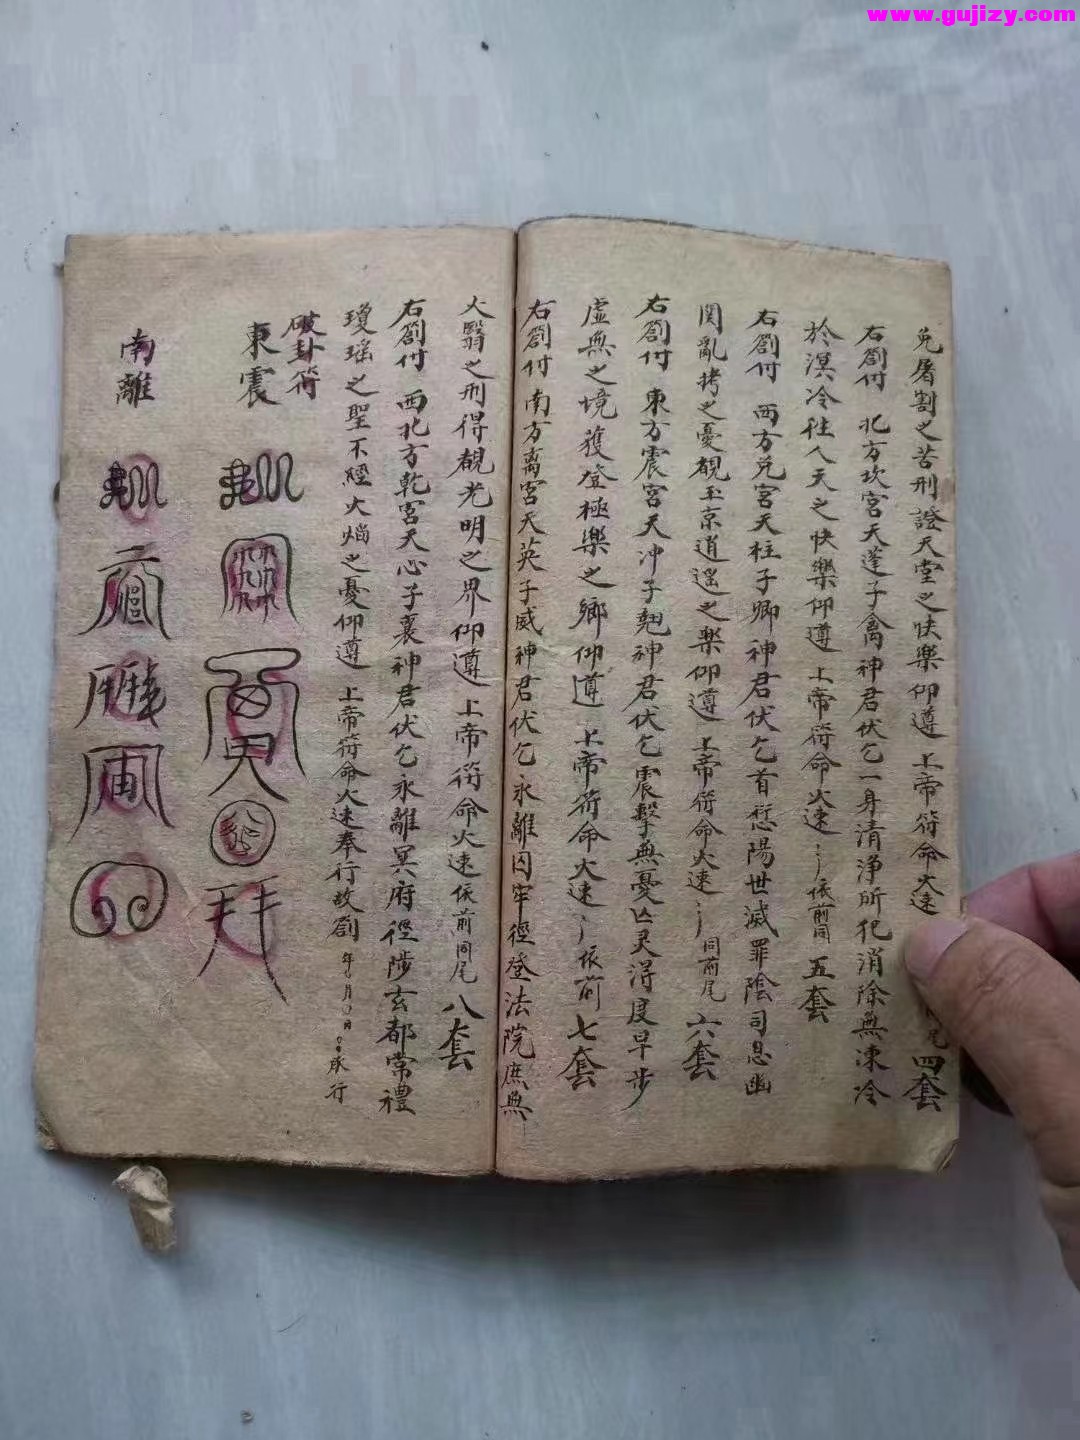 www.gujizy.com
免屠割之苦刑證天堂之快樂仰遵 上帝符命火速 尾 四套
右劄付 北方坎宮天蓬子禽神君伏乞一身清淨所犯消除無凍冷
於溟冷往人天之快樂仰遵 上帝符命火速 依前同 五套
右劄付 西方兌宮天柱子卿神君伏乞首愆陽世滅罪陰司息幽
関亂拷之憂覩玉京逍遥之樂仰遵 上帝符命火速 同前尾 六套
右劄付 東方震宮天冲子翹神君伏乞震擊無憂亾灵得度早步
虛無之境獲登極樂之鄉仰遵 上帝符命火速 依前 七套
右劄付 南方离宮天英子威神君伏乞永離囚牢徑登法院庶無
火翳之刑得覩光明之界仰遵 上帝符命火速依前同尾 八套
右劄付 西北方乾宮天心子襄神君伏乞永離冥府徑陟玄都常禮
瓊瑶之聖不經火焰之憂仰遵 上帝符命火速奉行故劄 年 月 日 承行
破卦符
東震
南離